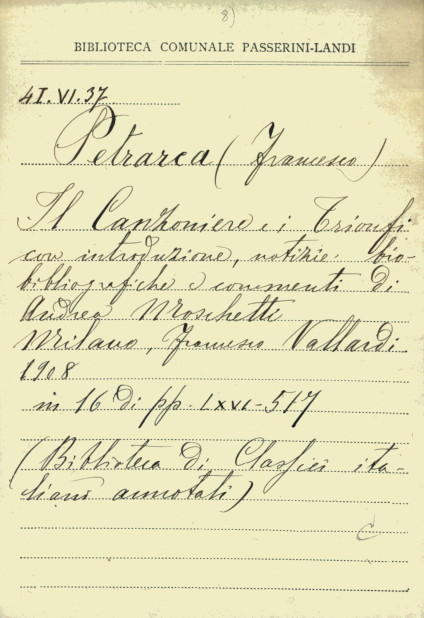 8)
BIBLIOTECA COMUNALE PASSERINI-LANDI
4I.VI.37
Petrarca (Francesco)
Il Canzoniere e i Trionfi
con introduzione, notizie bio-
bibliografiche e commenti di
Andrea Moschetti
Milano, Francesco Vallardi
1908
in 16° di pp. LXVI-517
(Biblioteca di Classici ita-
liani annotati)
C